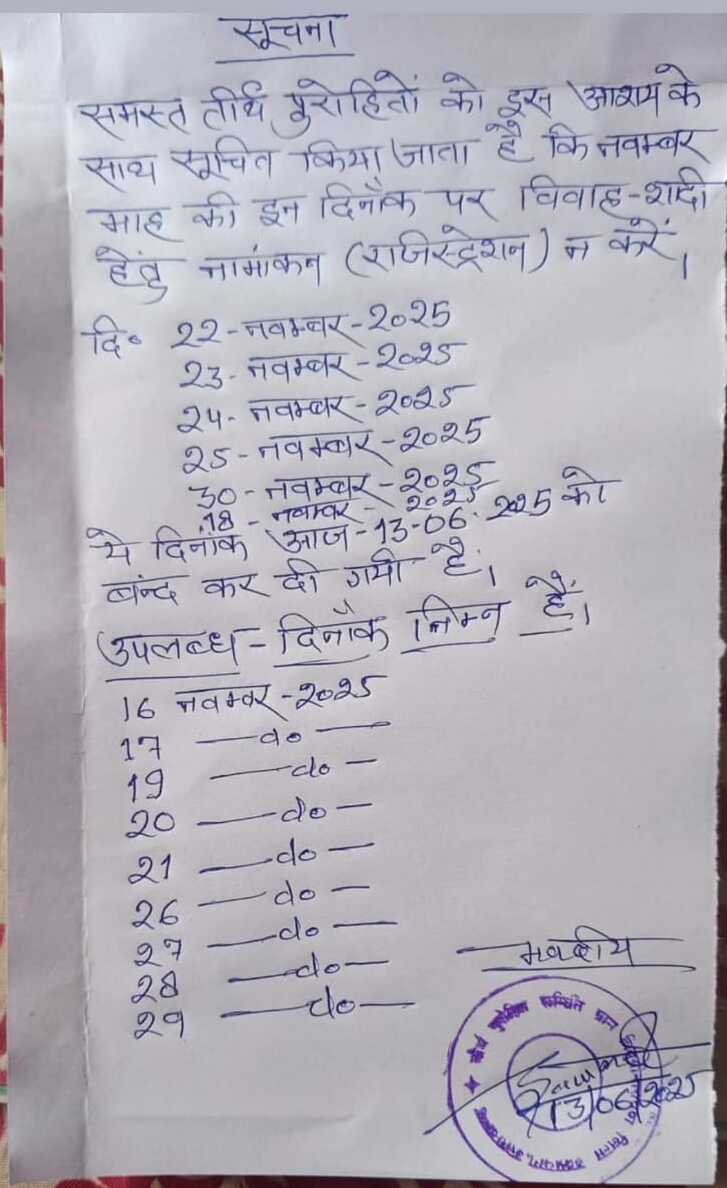 सूचना
समस्त तीर्थ पुरोहितों को इस आशय के
साथ सूचित किया जाता है कि नवम्बर
माह की इन दिनाँक पर विवाह-शादी
हेतु नामांकन (राजिस्ट्रेशन) न करें।
दि० 22-नवम्बर-2025
23-नवम्बर-2025
24-नवम्बर-2025
25-नवम्बर-2025
30-नवम्बर-2025
18-नवम्बर-2025
ये दिनांक आज-13-06-2025 को
बन्द कर दी गयी है।
उपलब्ध-दिनाँक निम्न हैं।
16 नवम्बर-2025
17 —do—
19 —do—
20 —do—
21 —do—
26 —do—
27 —do—
28 —do—
29 —do—
भवदीय
तीर्थ पुरोहित समिति ग्राम
13/06/2025